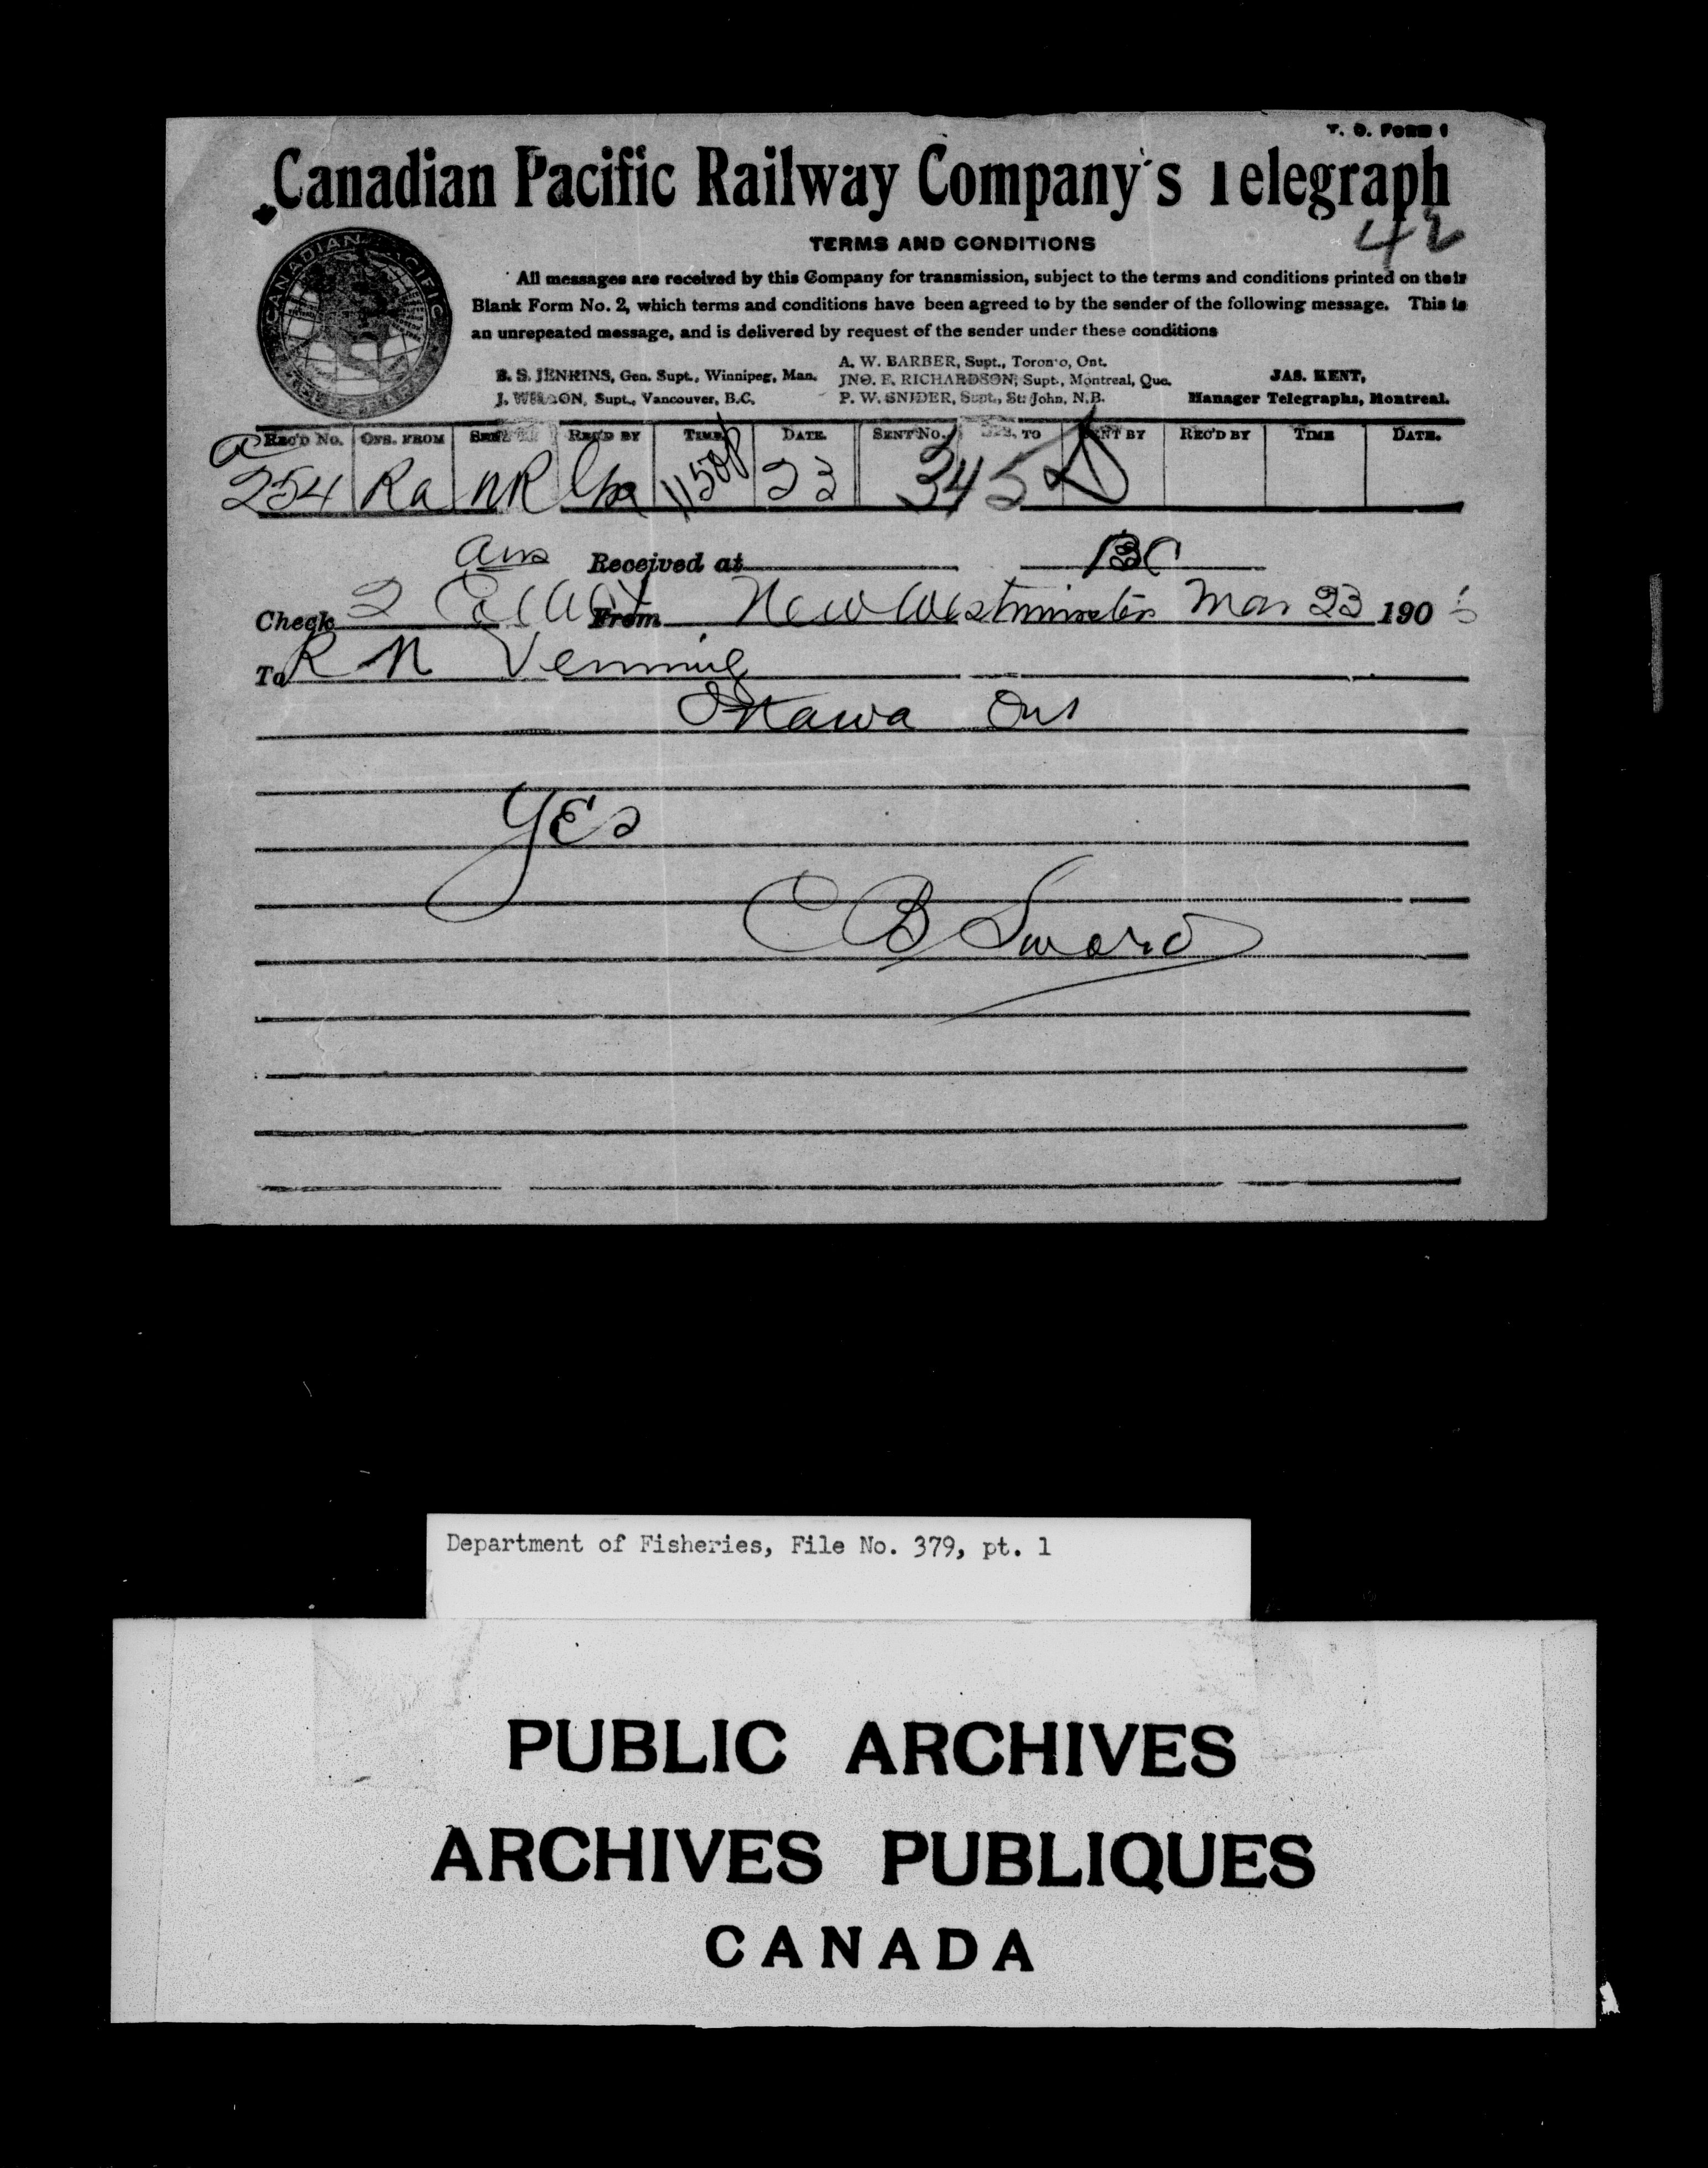 T. D. FORM 1
Canadian Pacific Railway Company's Telegraph
42
TERMS AND CONDITIONS
CANADIAN PACIFIC
All messages are received by this Company for transmission, subject to the terms and conditions printed on their
Blank Form No. 2, which terms and conditions have been agreed to by the sender of the following message. This is
an unrepeated message, and is delivered by request of the sender under these conditions
B. S. JENKINS, Gen. Supt., Winnipeg, Man.
J. WILSON, Supt., Vancouver, B.C.
A. W. BARBER, Supt., Toronto, Ont.
JNO. F. RICHARDSON, Supt., Montreal, Que.
P. W. SNIDER, Supt., St. John, N.B.
JAS. KENT,
Manager Telegraphs, Montreal.
REC'D No. OFS. FROM SENT BY REC'D BY TIME DATE. SENT No. OFS. TO SENT BY REC'D BY TIME DATE.
254 Ra NR 1150p 23 345
Ans Received at BC
Check 2 From New Westminster Mar 23 190
To R N Venning
Ottawa Ont
Yes
C B Sword
Department of Fisheries, File No. 379, pt. 1
PUBLIC ARCHIVES
ARCHIVES PUBLIQUES
CANADA